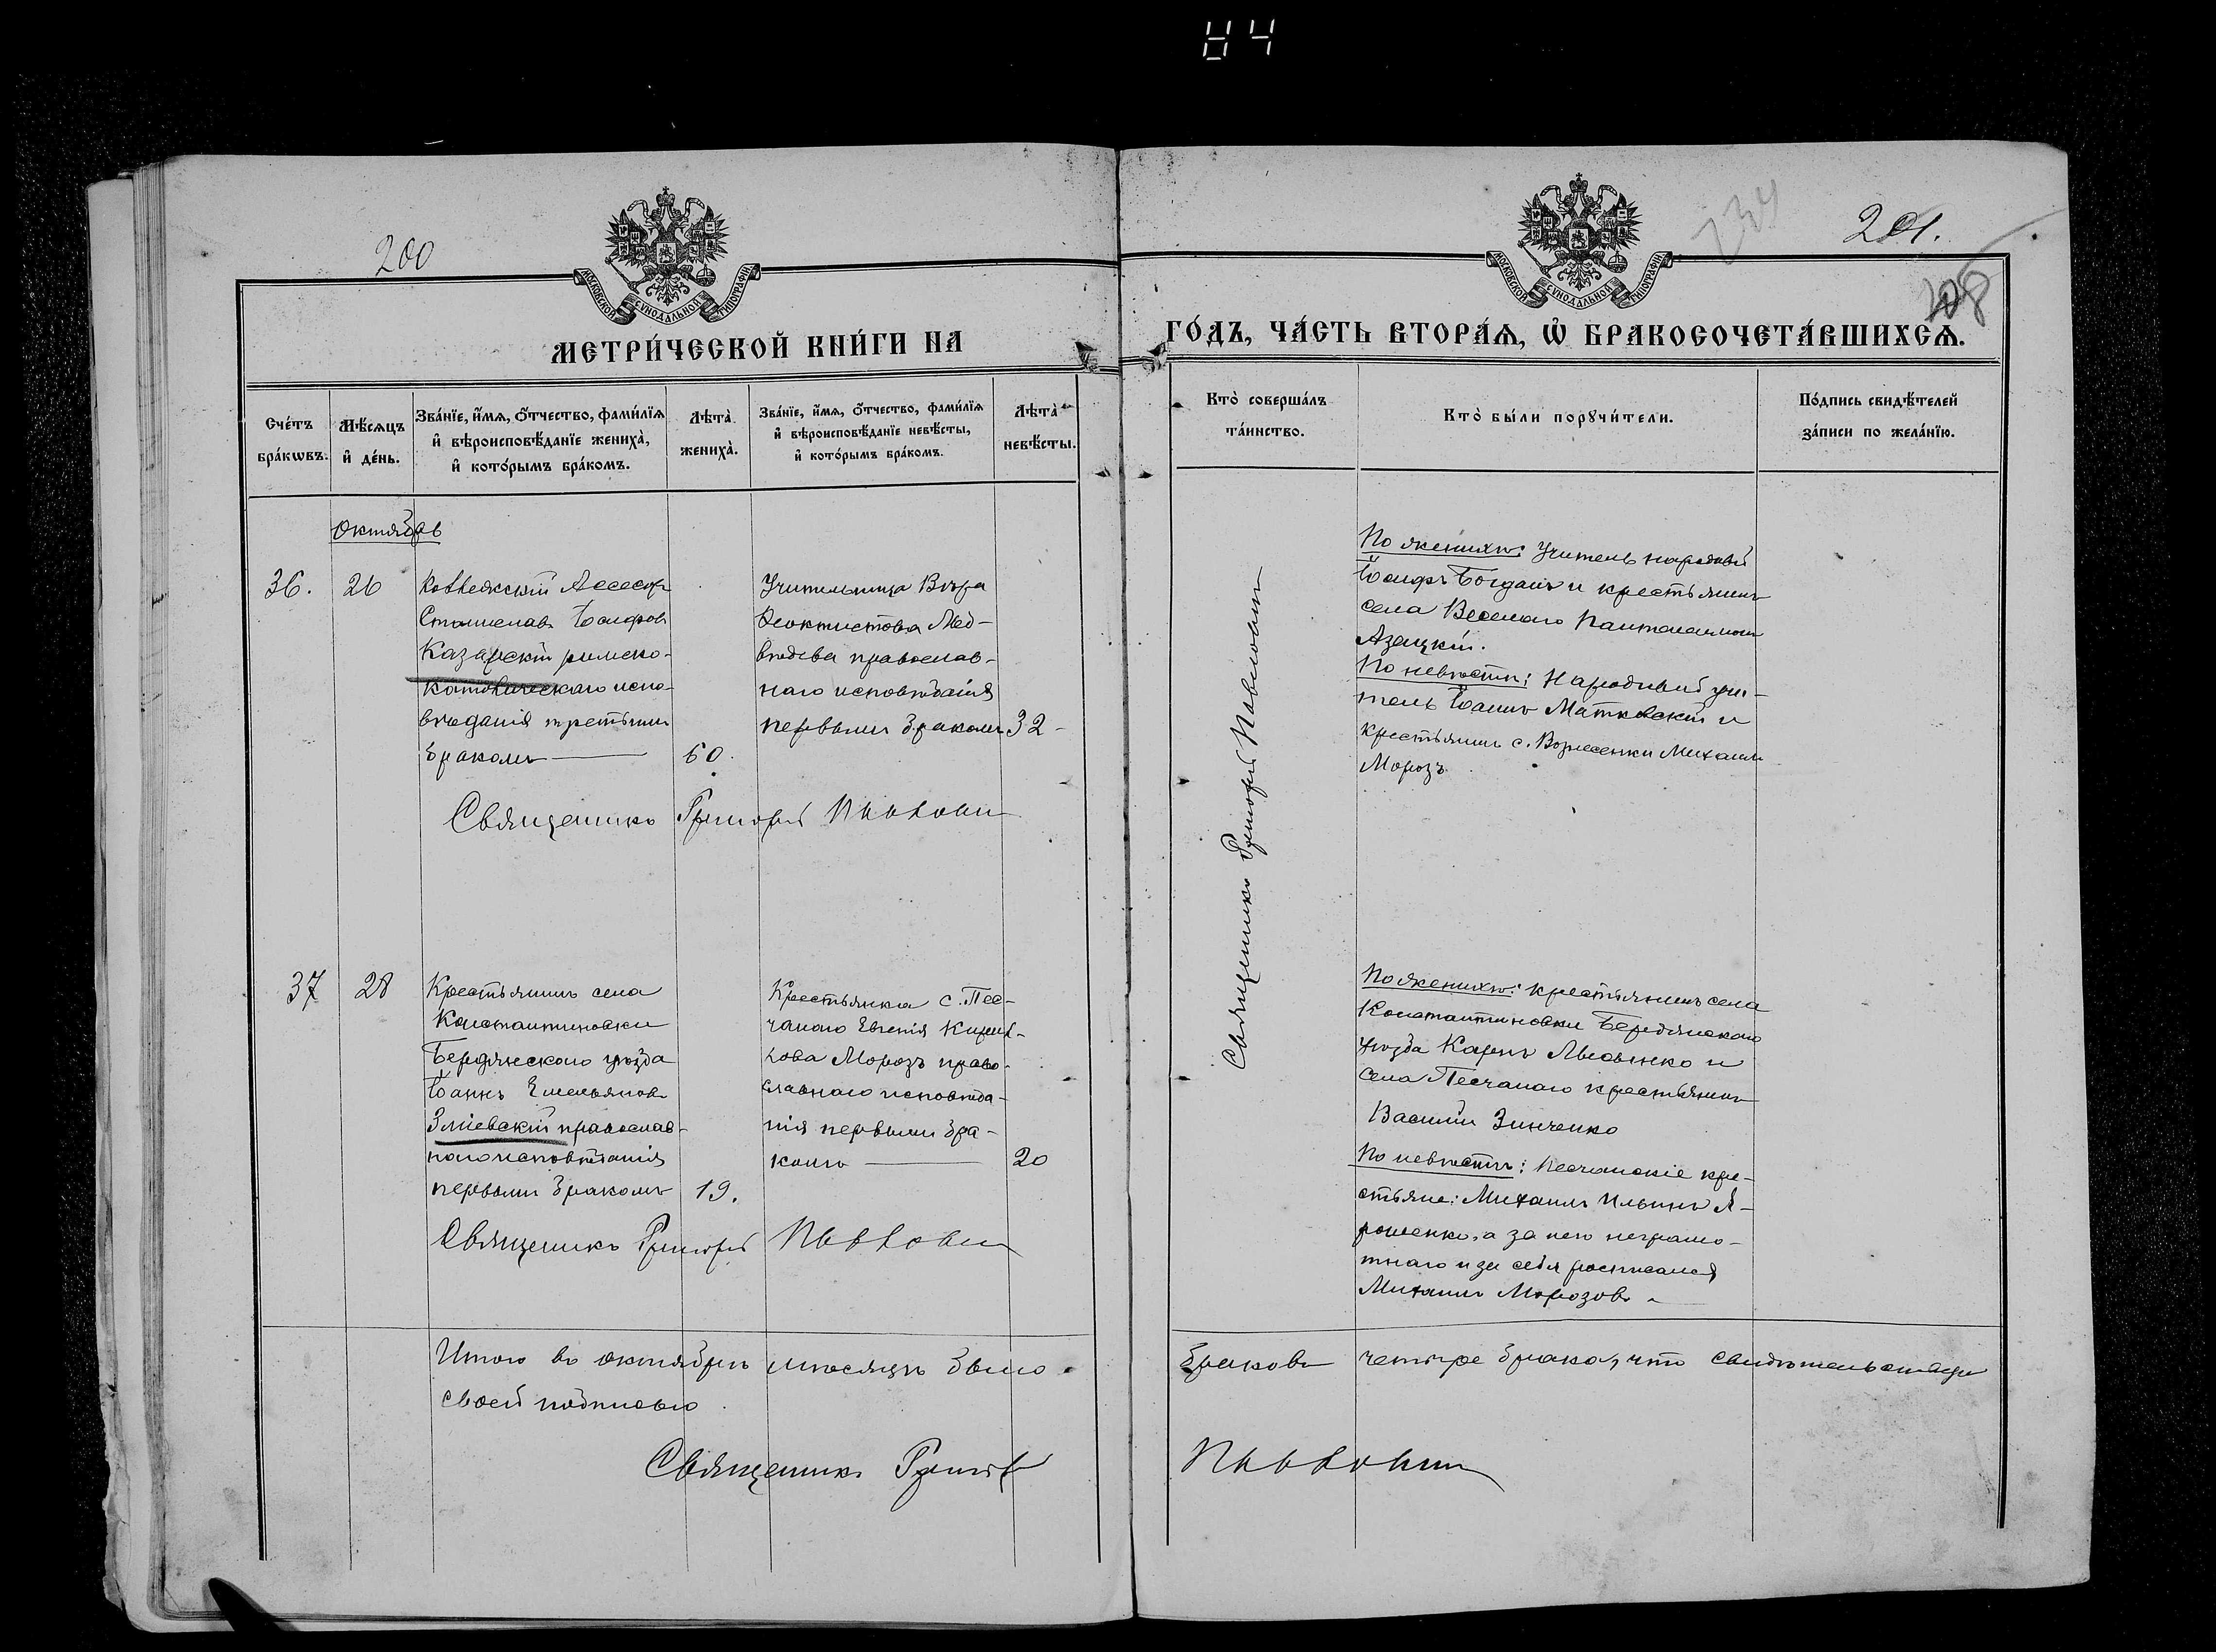 84
200
МОСКОВСКОЙ СѴНОДАЛЬНОЙ ТИПОГРАФІИ
МЕТРИ́ЧЕСКОЙ КНИ́ГИ НА
Сче́тъ бра́кѡвъ.
Мѣ́сяцъ и҆ де́нь.
Зва́нїе, и҆́мѧ, ѻ҆́тчество, фами́лїѧ и҆ вѣроисповѣ́данїе жениха̀, и҆ кото́рымъ бра́комъ.
Лѣта̀ жениха̀.
Зва́нїе, и҆́мѧ, ѻ҆́тчество, фами́лїѧ и҆ вѣроисповѣ́данїе невѣ́сты, и҆ кото́рымъ бра́комъ.
Лѣта̀ невѣ́сты.
Октябрь
36.
26
Коллежскій Ассесоръ
Станиславъ Іосифовъ
Казарскій римско-
католическаго испо-
вѣданія третьимъ
бракомъ
60.
Учительница Вѣра
Феоктистова Мед-
вѣдева православ-
наго исповѣданія
первымъ бракомъ
32
Священникъ Григорій Павловичъ
37
28
Крестьянинъ села
Константиновки
Бердянскаго уѣзда
Іоаннъ Емельяновъ
Зміевскій православ-
наго исповѣданія
первымъ бракомъ
19.
Крестьянка с. Пес-
чанаго Евгенія Кирил-
лова Морозъ право-
славнаго исповѣда-
нія первымъ бра-
комъ
20
Священникъ Григорій
Итого въ октябрѣ мѣсяцѣ было
своей подписью
Священникъ
МОСКОВСКОЙ СѴНОДАЛЬНОЙ ТИПОГРАФІИ
234
201.
208
ГО́ДЪ, ЧА́СТЬ ВТОРА́Ѧ, Ѽ БРАКОСОЧЕТА́ВШИХСѦ.
Кто̀ соверша́лъ та́инство.
Кто̀ бы́ли порꙋчи́тели.
По́дпись свидѣ́телей за́писи по жела́нїю.
Священникъ Григорій Павловичъ
По женихѣ: Учитель народный
Іосифъ Богданъ и крестьянинъ
села Веселаго Пантелеимонъ
Азацкій.
По невѣстѣ: Народный учи-
тель Іоаннъ Матковскій и
крестьянинъ с. Вознесенки Михаилъ
Морозъ
По женихѣ: крестьянинъ села
Константиновки Бердянскаго
уѣзда Карпъ Лысенко и
села Песчанаго крестьянинъ
Василій Зинченко
По невѣстѣ: песчанскіе кре-
стьяне: Михаилъ Ильинъ Я-
рошенко, а за него неграмо-
тнаго и за себя росписался
Михаилъ Морозовъ
Браковъ четыре брака, что свидѣтельствую